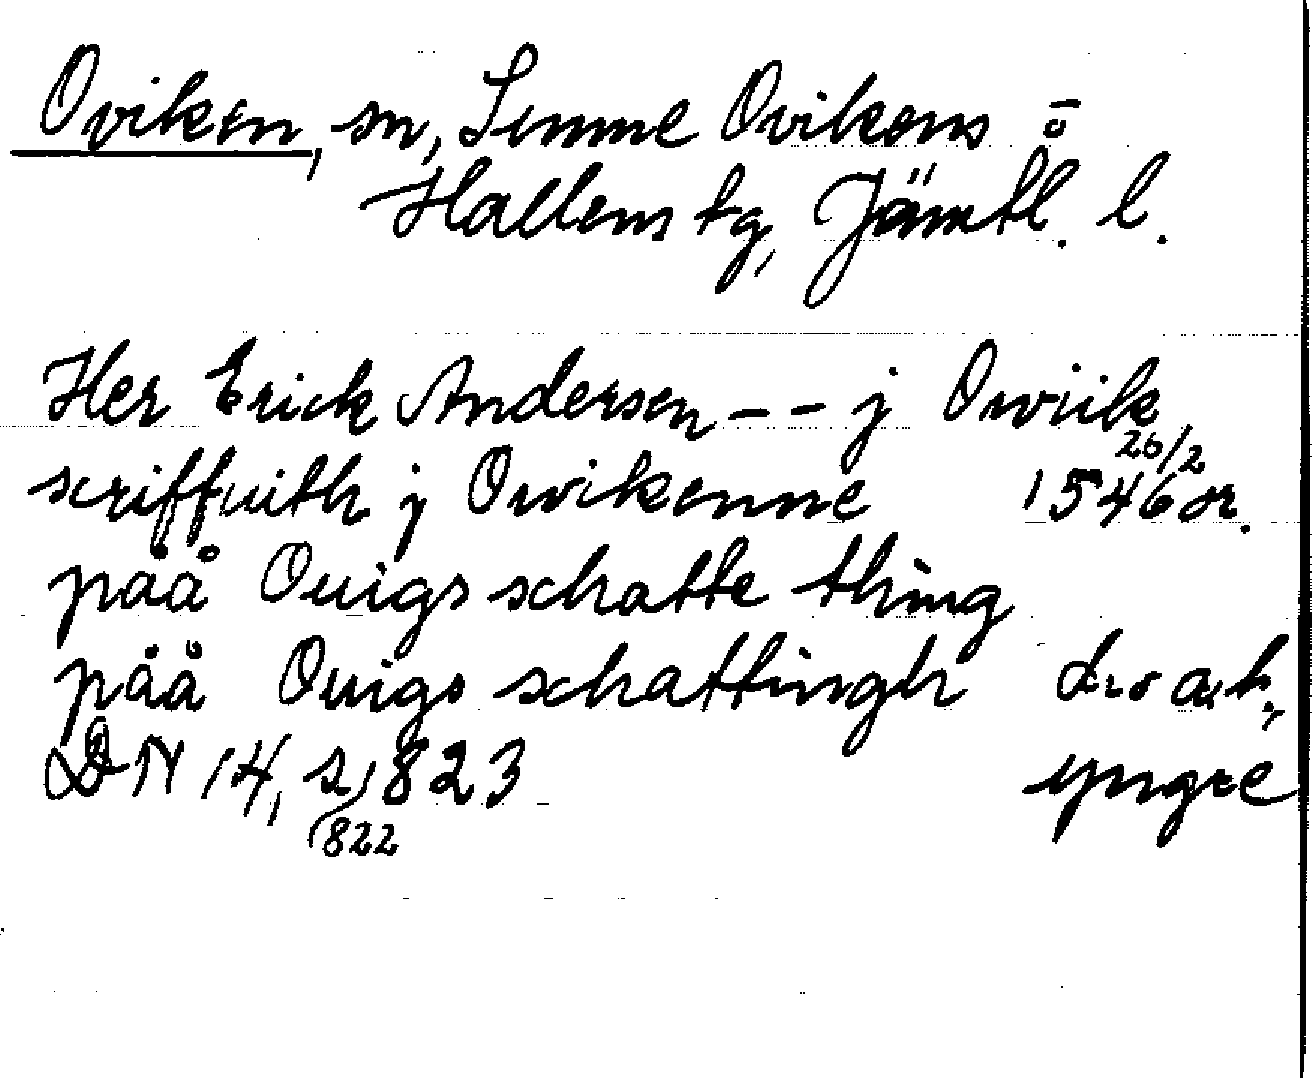 Oviken, sn, Sunne Ovikens o
Hallens tg, Jämtl. l.
Her Erick Andersen -- j Owiik
scriffuith j Owikenne 1546 26/2 or.
påå Ouigs schatte thing
påå Ouigs schattingh
DN 14, s, 823 yngre
(822